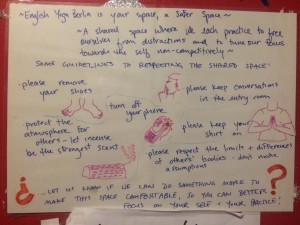 ~English Yoga Berlin is your space, a Safer Space~
~A shared space where we each practice to free
ourselves from distractions and to turn our focus
towards the self non-competitively~
SOME GUIDELINES TO RESPECTING THE SHARED SPACE:
please remove
your shoes
please keep conversations
in the entry room
turn off
your phone
protect the
atmosphere for
others - let incense
be the strongest scent
please keep your
shirt on
please respect the limits + differences
of others' bodies - don't make
assumptions
¿ ... LET US KNOW IF WE CAN DO SOMETHING MORE TO
MAKE THIS SPACE COMFORTABLE, SO YOU CAN BETTER
FOCUS ON YOUR SELF + YOUR PRACTICE! ?